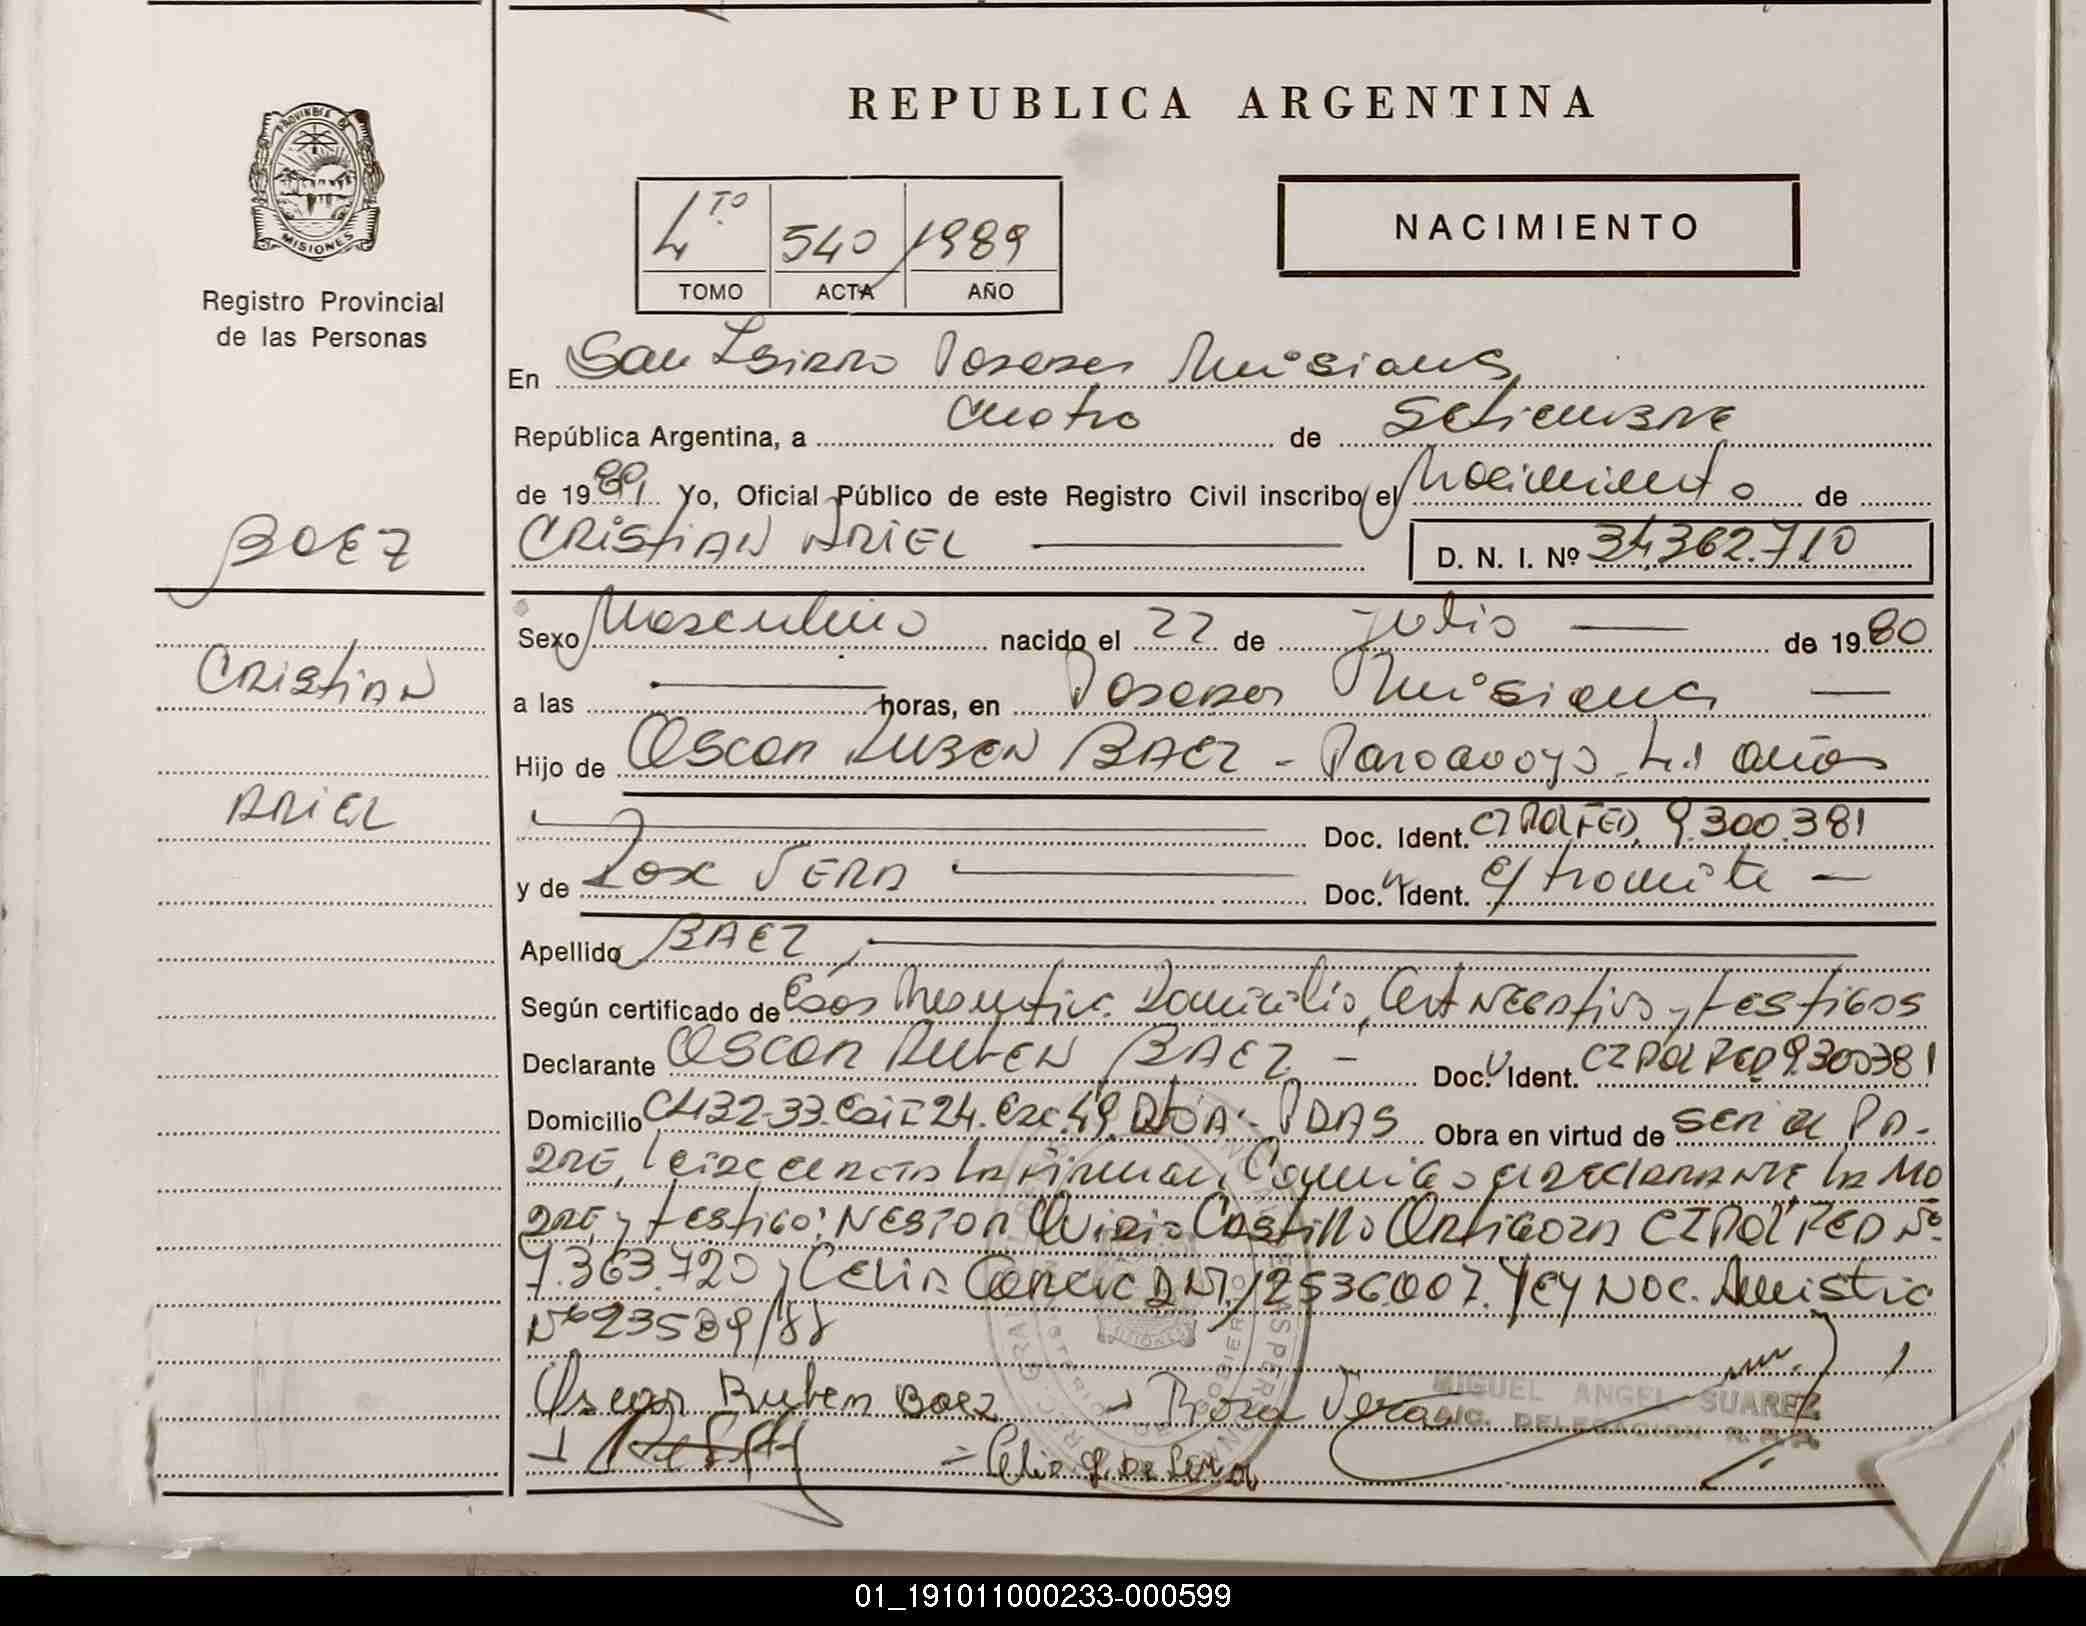 REPUBLICA ARGENTINA
PROVINCIA DE
MISIONES
Registro Provincial
de las Personas
4TO 540 1989
TOMO ACTA AÑO
NACIMIENTO
En San Isidro Posadas Misiones
República Argentina, a cuatro de Setiembre
de 1989 Yo, Oficial Público de este Registro Civil inscribo el Nacimiento de
BAEZ
CRISTIAN ARIEL
D. N. I. Nº 34.362.710
Sexo Masculino nacido el 22 de Julio de 1980
CRistiAN
a las horas, en Posadas Misiones
Hijo de OSCAR RUBEN BAEZ - Paraguayo 41 años
ARIEL
Doc. Ident. CI POL FED. 9.300.381
y de Rosa VERA Doc. Ident. e/ tramite
Apellido BAEZ
Según certificado de Domicilio, Cert NEGAtivo y tEStiGOS
Declarante OSCAR RUBEN BAEZ - Doc. Ident. CI POL FED 9.300381
Domicilio CH32-33. 24. 49. PDAS Obra en virtud de SER el PA-
DRE, Leida el ActA LA Firman Conmigo el DECLARANTE, LA MA
DRE y testigo: NESTOR Ovidio CAStillo CI POL FED Nº
7.363.720 y CELIA DNI. 12536007. LEY NAC. Amistia
Nº 23589/88
Oscar Ruben Baez Rosa Vera
MIGUEL ANGEL SUAREZ
A/C. DELEGACION
01_191011000233-000599